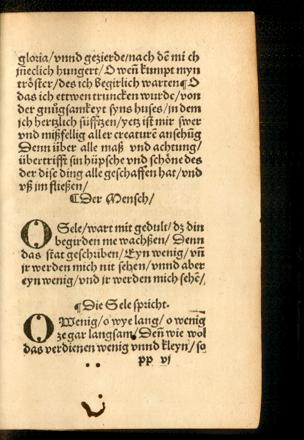 gloria/vnnd gezierde/nach dē mi ch
jneclich hungert/O wen̄ kumpt myn
trőster/des ich begirlich warten¶O
das ich ettwen truncken wurde/von
der gnűgsamkeyt syns huses/in dem
ich hertzlich süfftzen/yetz ist mir swer
vnd mißfellig aller creaturē ansehūg
Denn über alle maß vnd achtung/
übertrifft sin hüpsche vnd schőne des
der dise ding alle geschaffen hat/vnd
vß im fließen/
¶Der Mensch/
O Sele/wart mit gedult/dz din
begirden me wachßen/Denn
das stat geschriben/Eyn wenig/vn̄
jr werden mich nit sehen/vnnd aber
eyn wenig/vnd jr werden mich sehē/
¶Die Sele spricht.
O Wenig/o wye lang/o wenig
ze gar langsam/Den̄ wie wol
das verdienen wenig vnnd kleyn/so
pp vj